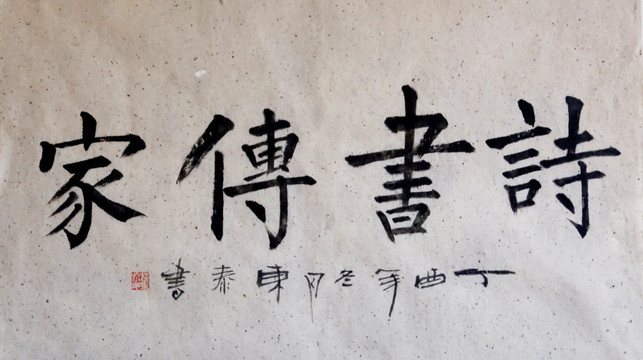 詩書傳家
丁酉年冬月東泰書